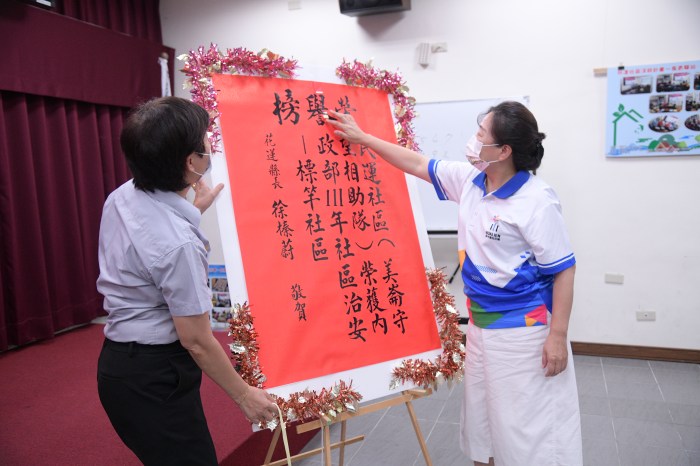 榮譽榜
民運社區(美崙守
望相助隊)榮獲內
政部111年社區治安
—標竿社區
花蓮縣長 徐榛蔚 敬賀